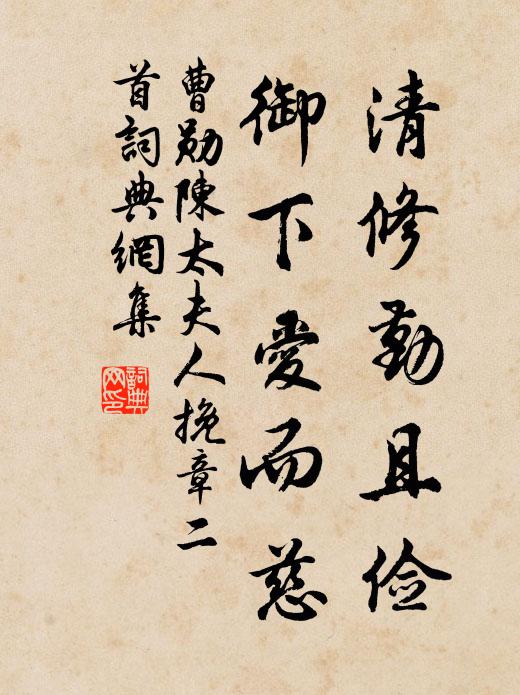 清修勤且俭
御下愛而慈
曹勛陳太夫人挽章二
首詞典網集
詞典网印